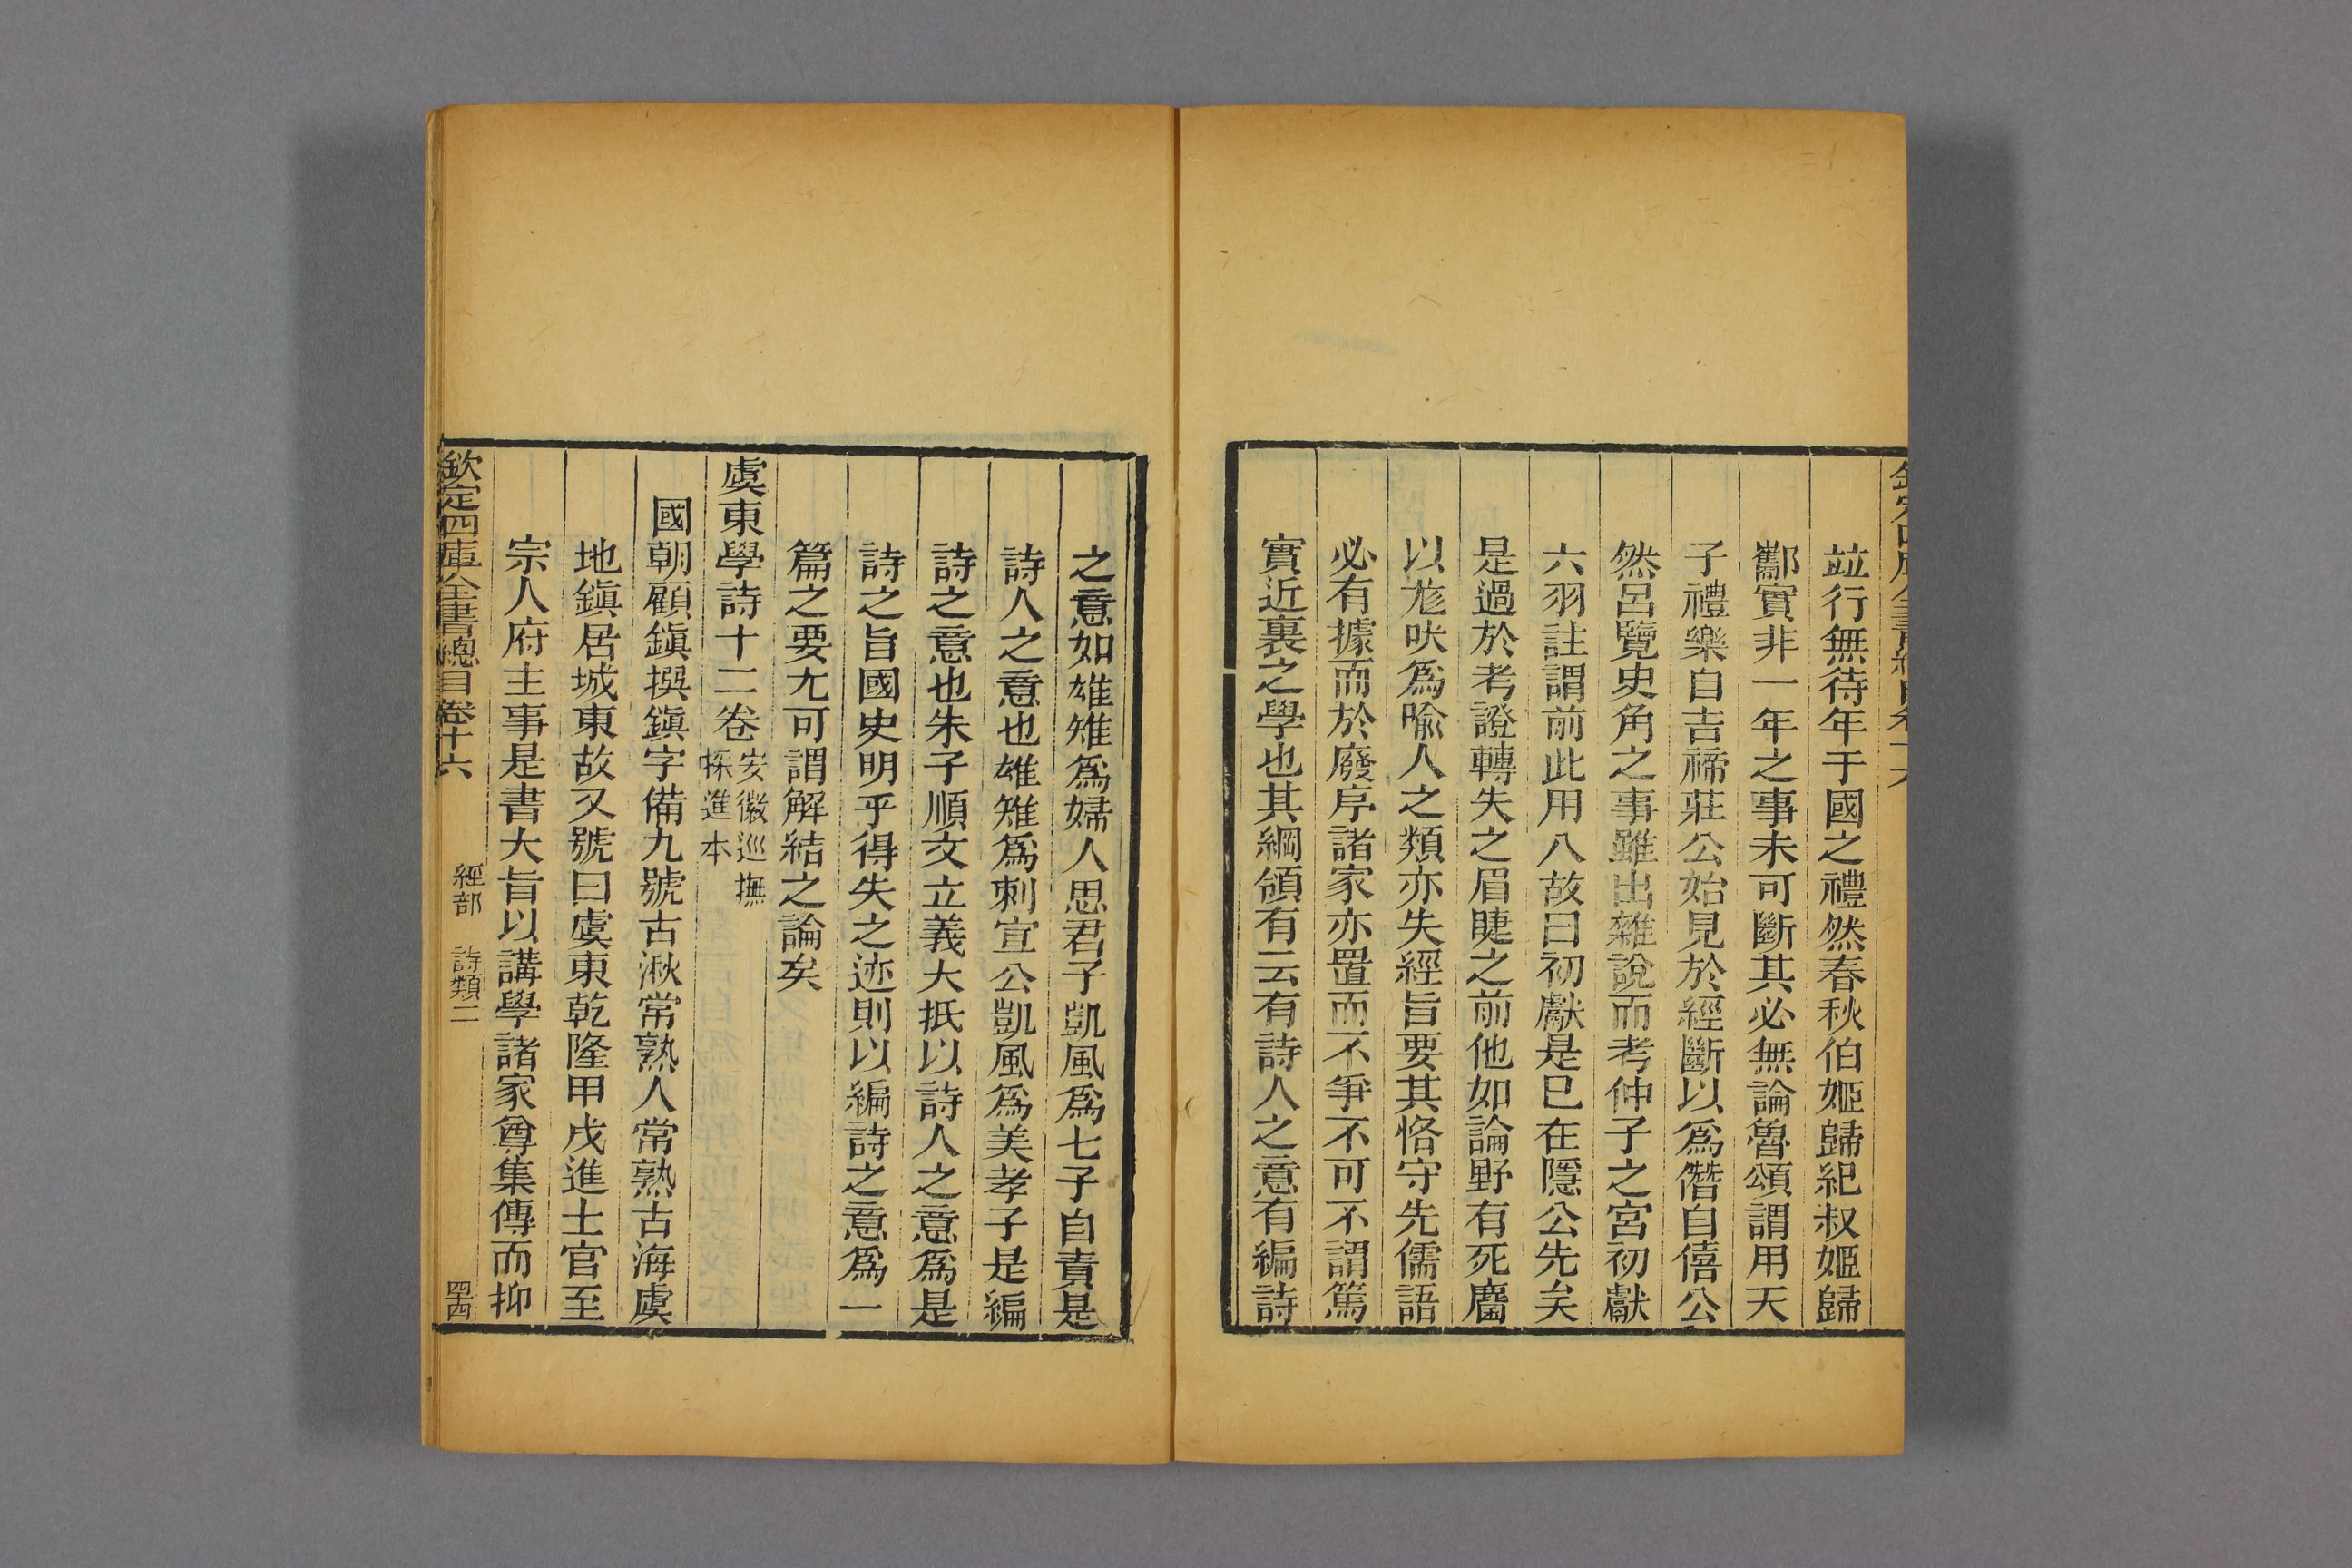 竝行無待年于國之禮然春秋伯姬歸紀叔姬歸
酅實非一年之事未可斷其必無論魯頌謂用天
子禮樂自吉禘莊公始見於經斷以爲僭自僖公
然呂覽史角之事雖出雜說而考仲子之宮初獻
六羽註謂前此用八故曰初獻是已在隱公先矣
是過於考證轉失之眉睫之前他如論野有死麕
以尨吠爲喻人之類亦失經旨要其恪守先儒語
必有據而於廢序諸家亦置而不爭不可不謂篤
實近裏之學也其綱領有云有詩人之意有編詩
之意如雄雉爲婦人思君子凱風爲七子自責是
詩人之意也雄雉爲刺宣公凱風爲美孝子是編
詩之意也朱子順文立義大抵以詩人之意爲是
詩之旨國史明乎得失之迹則以編詩之意爲一
篇之要尤可謂解結之論矣
虞東學詩十二卷安徽巡撫
採進本
國朝顧鎭撰鎭字備九號古湫常熟人常熟古海虞
地鎭居城東故又號曰虞東乾隆甲戌進士官至
宗人府主事是書大旨以講學諸家尊集傳而抑
欽定四庫全書總目卷十六 經部 詩類二 四十四